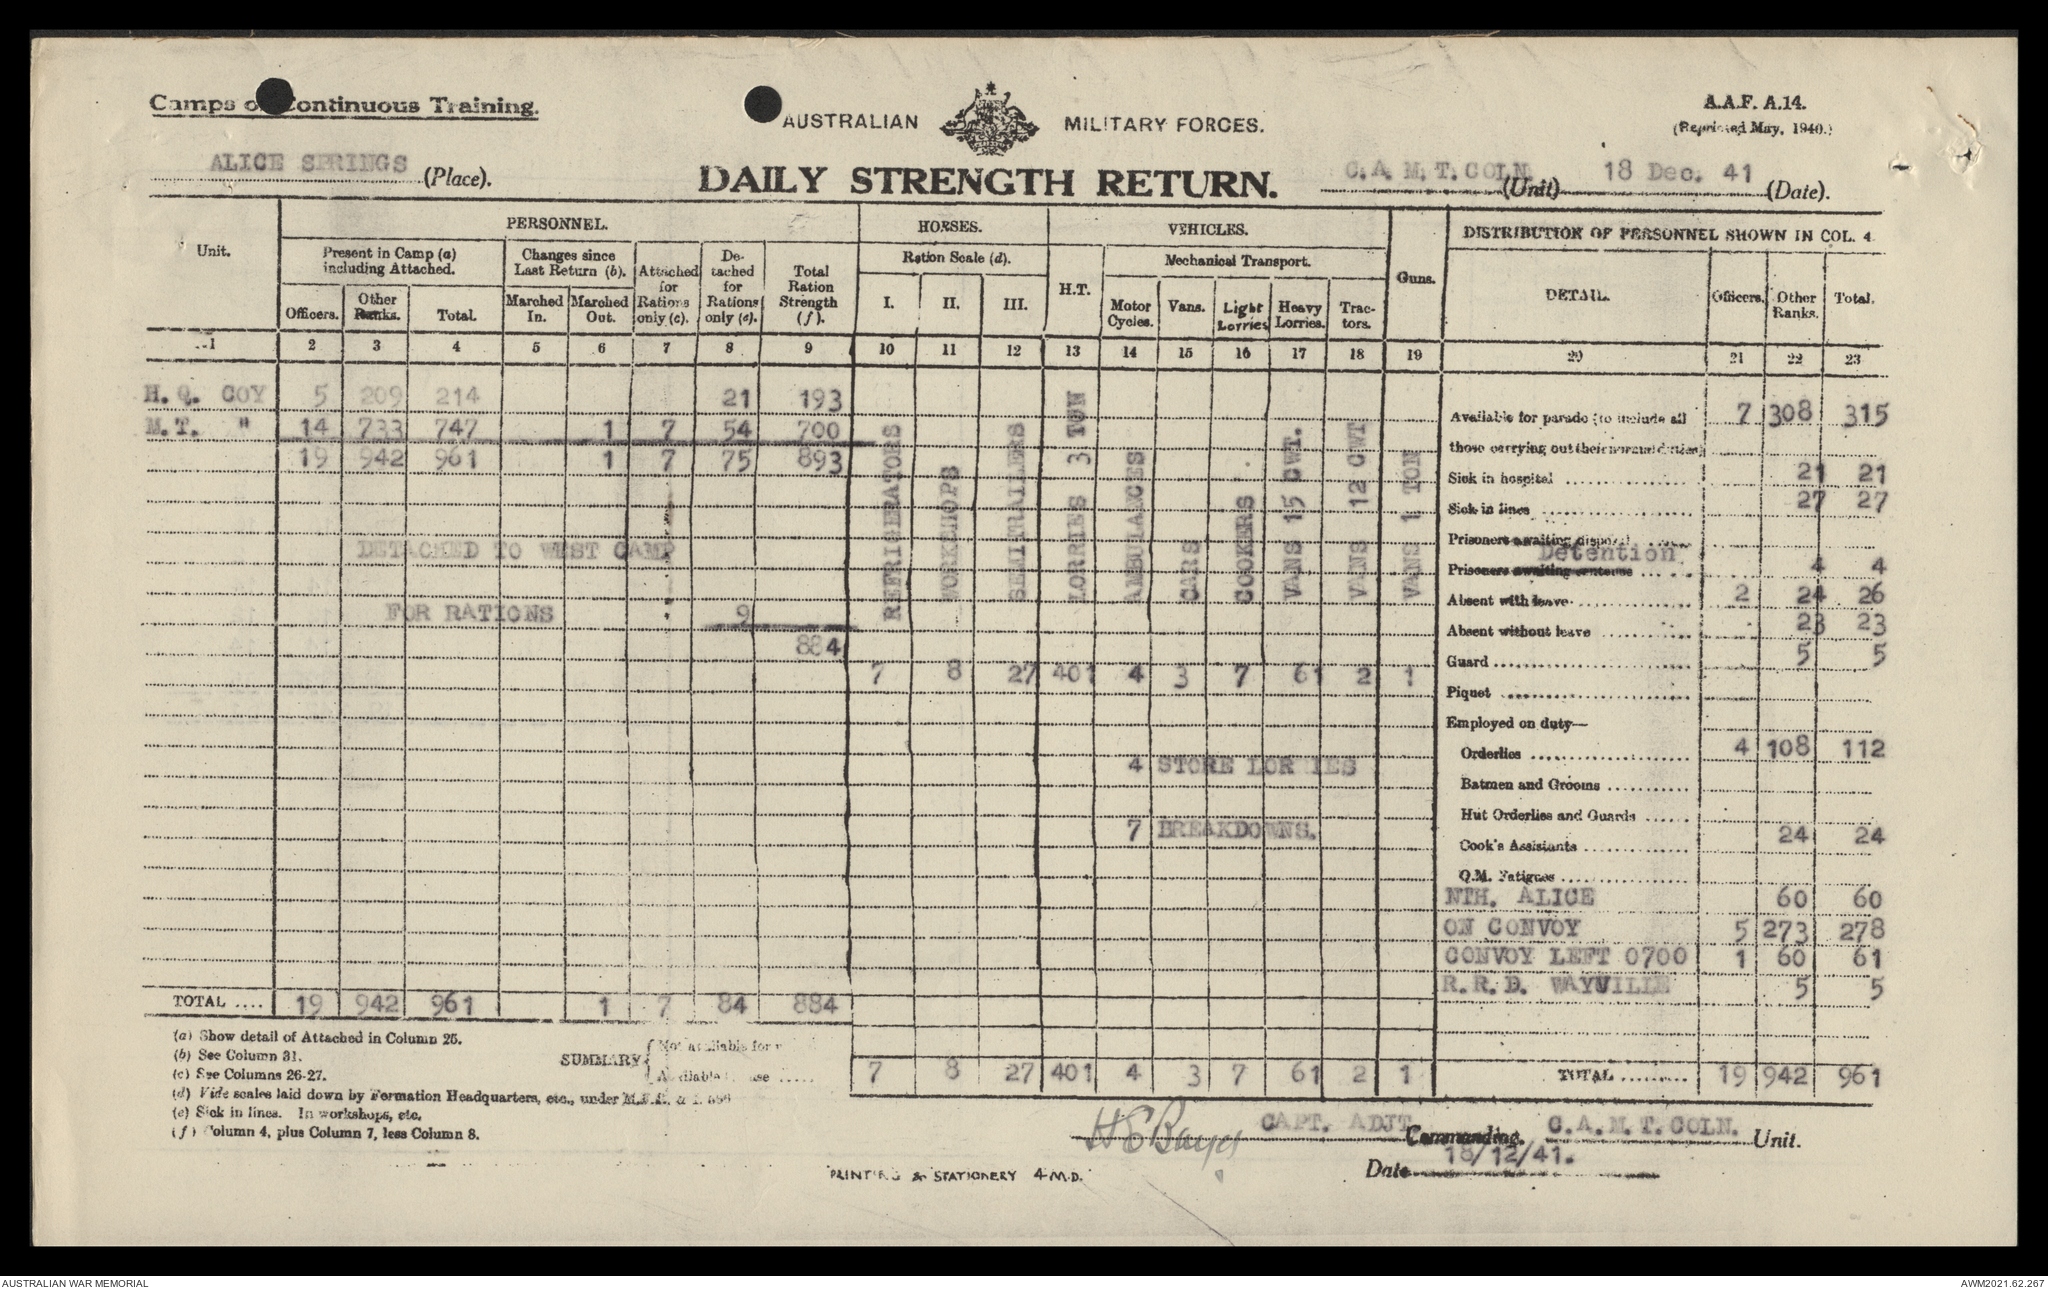 Camps of Continuous Training.
AUSTRALIAN MILITARY FORCES.
A.A.F. A.14.
(Reprinted May, 1940.)
ALICE SPRINGS (Place).
DAILY STRENGTH RETURN.
C.A.M.T.COLN. (Unit) 18 Dec. 41 (Date).
Unit.
PERSONNEL.
HORSES.
VEHICLES.
Guns.
DISTRIBUTION OF PERSONNEL SHOWN IN COL. 4
Present in Camp (a) including Attached.
Changes since Last Return (b).
Attached for Rations only (c).
De-tached for Rations only (e).
Total Ration Strength (f).
Ration Scale (d).
H.T.
Mechanical Transport.
DETAIL.
Officers.
Other Ranks.
Total.
Officers.
Other Ranks.
Total.
Marched In.
Marched Out.
I.
II.
III.
Motor Cycles.
Vans.
Light Lorries
Heavy Lorries.
Trac-tors.
1 2 3 4 5 6 7 8 9 10 11 12 13 14 15 16 17 18 19 20 21 22 23
H.Q. COY 5 209 214 21 193
M.T. " 14 733 747 1 7 54 700
19 942 961 1 7 75 893
DETACHED TO WEST CAMP
FOR RATIONS 9
884
REFRIGERATORS
WORKSHOPS
SEMITRAILERS
LORRIES 3 TON
AMBULANCES
CARS
COOKERS
VANS 15 CWT.
VANS 12 CWT
VANS 1 TON
7 8 27 401 4 3 7 61 2 1
4 STORE LORRIES
7 BREAKDOWNS.
Available for parade (to include all 7 308 315
those carrying out their normal duties)
Sick in hospital 21 21
Sick in lines 27 27
Prisoners awaiting disposal
Detention
Prisoners awaiting sentence 4 4
Absent with leave 2 24 26
Absent without leave 23 23
Guard 5 5
Piquet
Employed on duty—
Orderlies 4 108 112
Batmen and Grooms
Hut Orderlies and Guards
Cook's Assistants 24 24
Q.M. Fatigues
NTH. ALICE 60 60
ON CONVOY 5 273 278
CONVOY LEFT 0700 1 60 61
R.R.D. WAYVILLE 5 5
TOTAL .... 19 942 961 1 7 84 884
(a) Show detail of Attached in Column 25.
(b) See Column 31.
(c) See Columns 26-27.
(d) Vide scales laid down by Formation Headquarters, etc., under
(e) Sick in lines. In workshops, etc.
(f) Column 4, plus Column 7, less Column 8.
SUMMARY
Not available for
Available use
7 8 27 401 4 3 7 61 2 1
TOTAL 19 942 961
CAPT. ADJT Commanding. C.A.M.T.COLN. Unit.
Date 18/12/41.
PRINTING & STATIONERY 4 M.D.
AUSTRALIAN WAR MEMORIAL
AWM2021.62.267